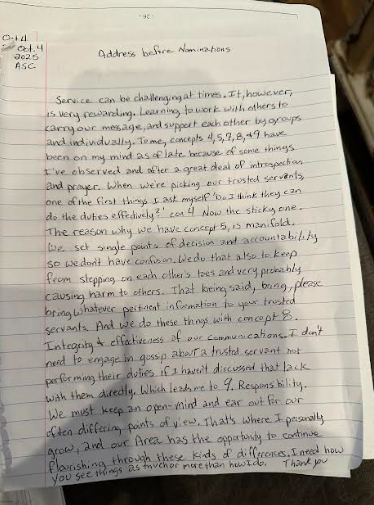 Oct 4
Oct. 4
2025
ASC
Address before Nominations
Service can be challenging at times. It, however,
is very rewarding. Learning to work with others to
carry our message, and support each other by groups
and individually. To me, concepts 4,5,7,8,+9 have
been on my mind as of late because of some things
I've observed and after a great deal of introspection
and prayer. When we're picking our trusted servants,
one of the first things I ask myself "Do I think they can
do the duties effectively?" con 4 Now the sticky one.
The reason why we have concept 5, is manifold.
We set single points of decision and accountability
so we dont have confusion. We do that also to keep
from stepping on each other's toes and very probably
causing harm to others. That being said, bring, please
bring whatever pertinent information to your trusted
servants. And we do these things with concept 8.
Integrity + effectiveness of our communications. I don't
need to engage in gossip about a trusted servant not
performing their duties if I haven't discussed that lack
with them directly. Which leads me to 9. Responsibility.
We must keep an open-mind and ear out for our
often differing points of view. That's where I personally
grow, and our Area has the opportunity to continue
flourishing through these kinds of differences. I need how
you see things as much or more than how I do. Thank you